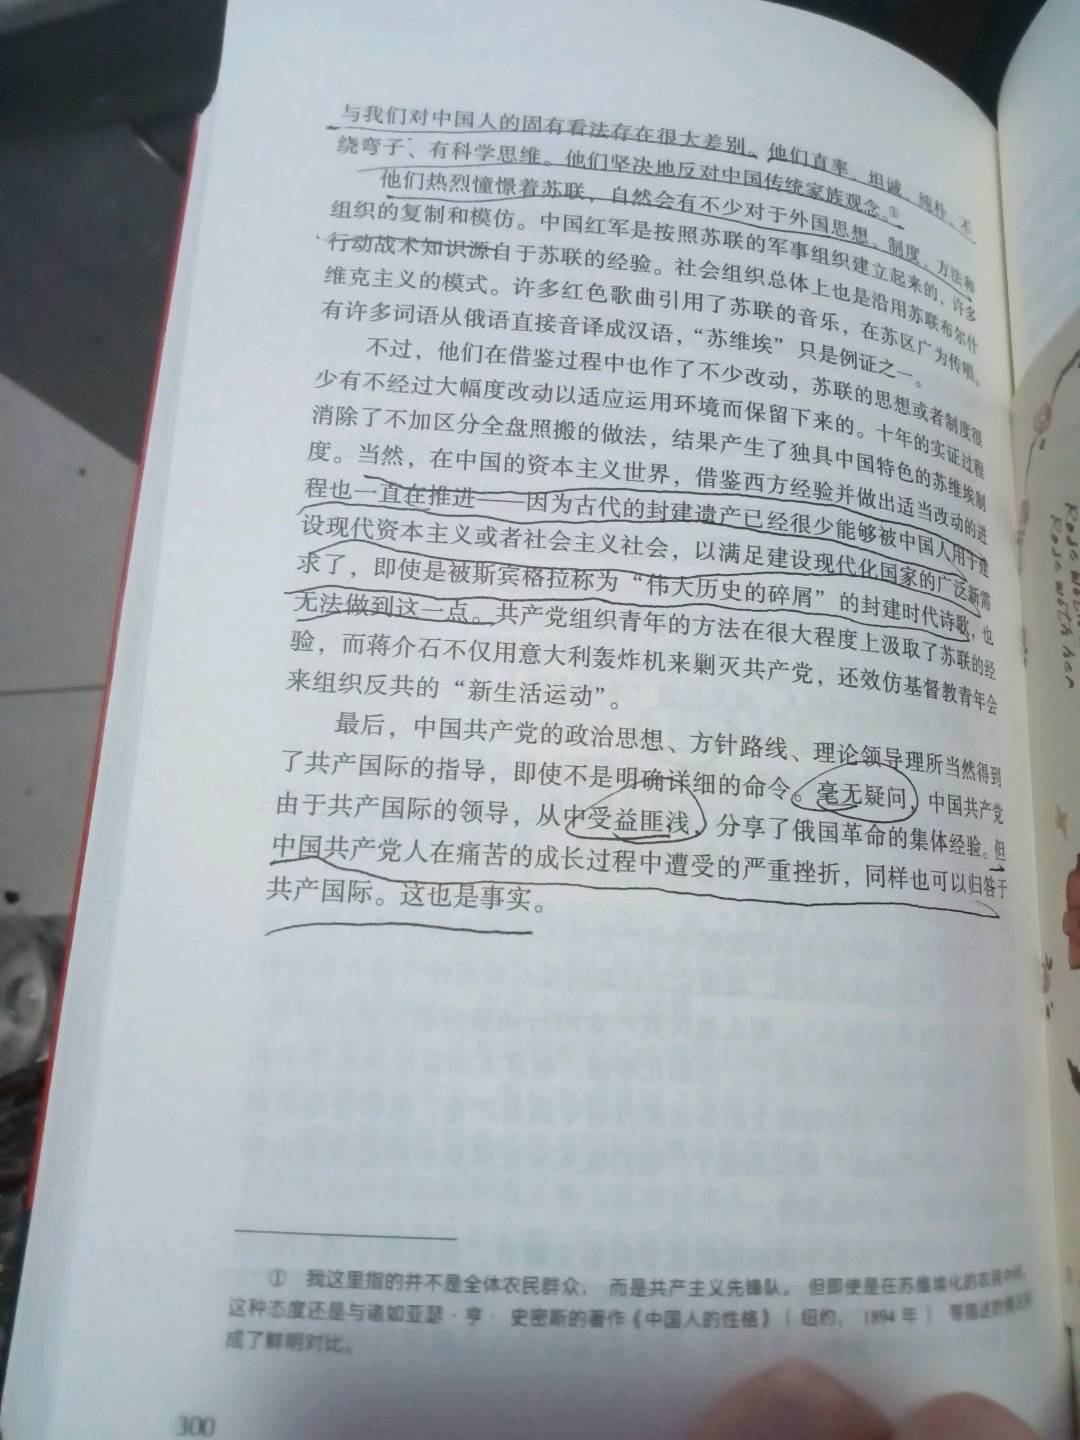 与我们对中国人的固有看法存在很大差别。他们直率、坦诚、纯朴、不
绕弯子、有科学思维。他们坚决地反对中国传统家族观念。①
他们热烈憧憬着苏联，自然会有不少对于外国思想、制度、方法和
组织的复制和模仿。中国红军是按照苏联的军事组织建立起来的，许多
行动战术知识源自于苏联的经验。社会组织总体上也是沿用苏联布尔什
维克主义的模式。许多红色歌曲引用了苏联的音乐，在苏区广为传唱。
有许多词语从俄语直接音译成汉语，“苏维埃”只是例证之一。
不过，他们在借鉴过程中也作了不少改动，苏联的思想或者制度很
少有不经过大幅度改动以适应运用环境而保留下来的。十年的实证过程
消除了不加区分全盘照搬的做法，结果产生了独具中国特色的苏维埃制
度。当然，在中国的资本主义世界，借鉴西方经验并做出适当改动的进
程也一直在推进——因为古代的封建遗产已经很少能够被中国人用于建
设现代资本主义或者社会主义社会，以满足建设现代化国家的广泛新需
求了，即使是被斯宾格拉称为“伟大历史的碎屑”的封建时代诗歌，也
无法做到这一点。共产党组织青年的方法在很大程度上汲取了苏联的经
验，而蒋介石不仅用意大利轰炸机来剿灭共产党，还效仿基督教青年会
来组织反共的“新生活运动”。
最后，中国共产党的政治思想、方针路线、理论领导理所当然得到
了共产国际的指导，即使不是明确详细的命令。毫无疑问，中国共产党
由于共产国际的领导，从中受益匪浅，分享了俄国革命的集体经验。但
中国共产党人在痛苦的成长过程中遭受的严重挫折，同样也可以归咎于
共产国际。这也是事实。
① 我这里指的并不是全体农民群众，而是共产主义先锋队。但即使是在苏维埃化的农民中间，
这种态度还是与诸如亚瑟·亨·史密斯的著作《中国人的性格》（纽约，1894年）等描述的情况形
成了鲜明对比。
300